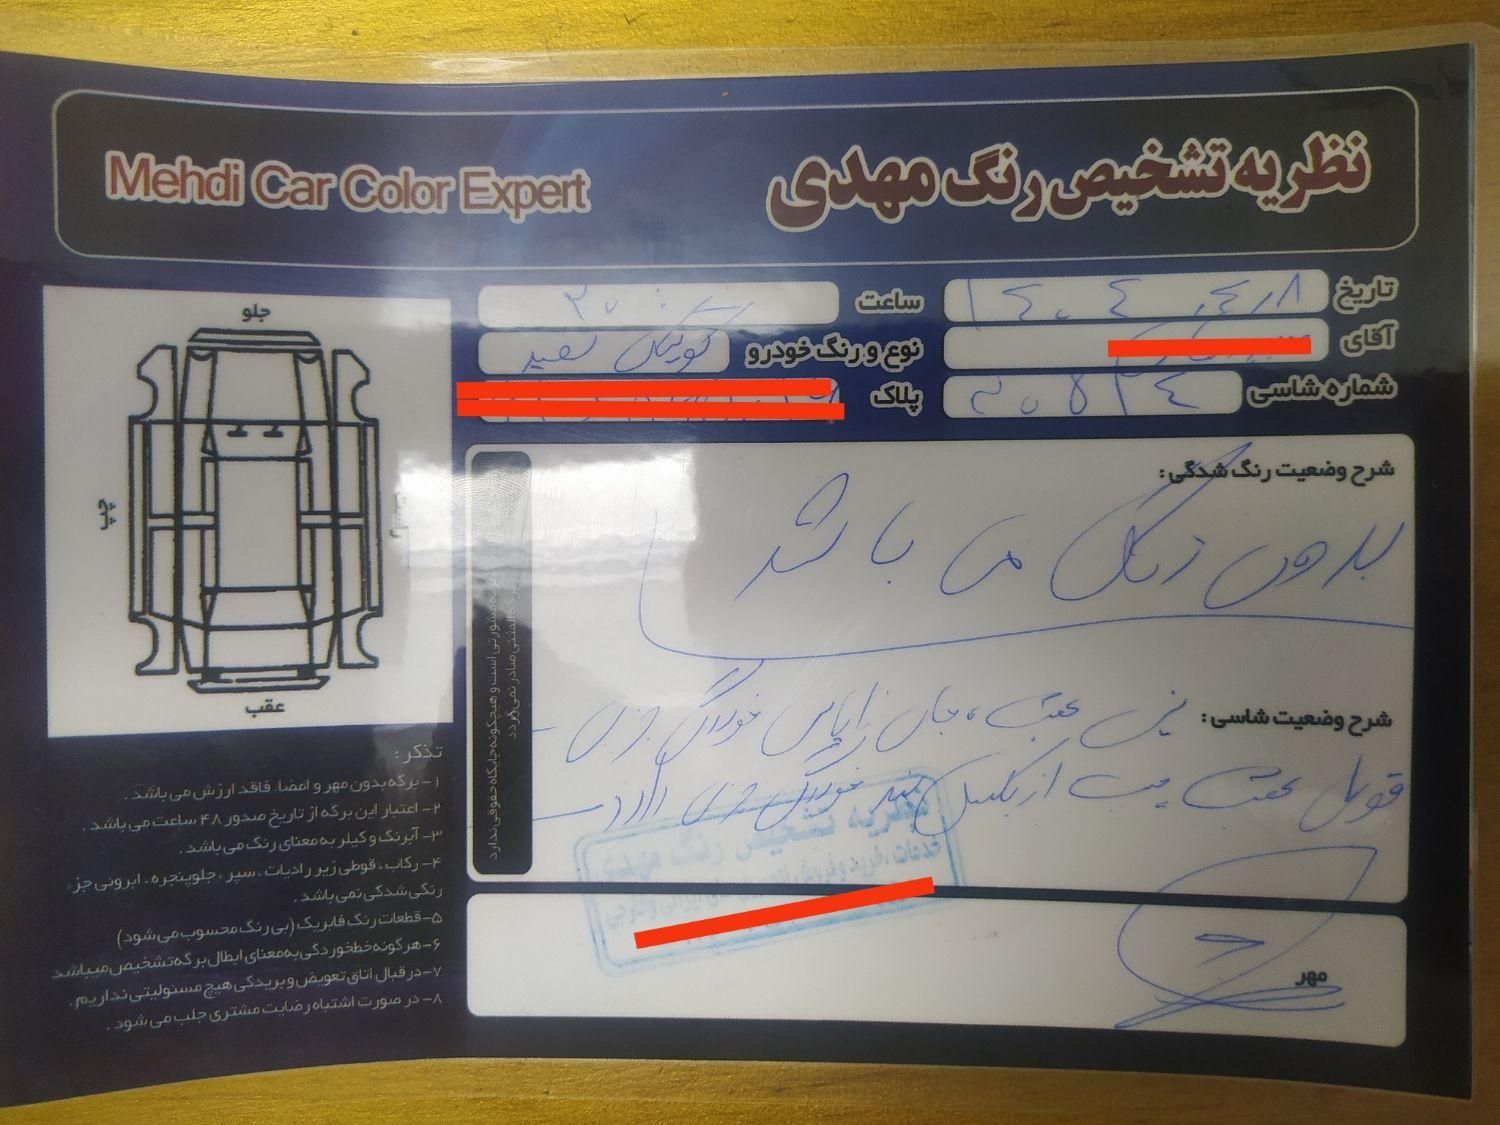 نظریه تشخیص رنگ مهدی
Mehdi Car Color Expert
تاریخ ۱۴۰۴،۰۴،۰۸
ساعت
آقای
نوع و رنگ خودرو کوییک سفید
شماره شاسی
پلاک
شرح وضعیت رنگ شدگی :
بدون رنگ می باشد
شرح وضعیت شاسی : سینی عقب ، جای زاپاس خوردگی جزئی
عقب چپ از بغل خوردگی جزئی دارد
مهر
نظریه تشخیص رنگ مهدی
جلو
چپ
راست
عقب
تذکر :
۱- برگه بدون مهر و امضا، فاقد ارزش می باشد .
۲- اعتبار این برگه از تاریخ صدور ۴۸ ساعت می باشد .
۳- آبرنگ و کیلر به معنای رنگ می باشد .
۴- رکاب ، قوطی زیر رادیات ، سپر ، جلوپنجره ، ابرونی جزء
رنگی شدگی نمی باشد .
۵- قطعات رنگ فابریک (بی رنگ محسوب می شود)
۶- هر گونه خط خوردگی به معنای ابطال برگه تشخیص میباشد
۷- در قبال اتاق تعویض و بریدگی هیچ مسئولیتی نداریم .
۸- در صورت اشتباه رضایت مشتری جلب می شود .